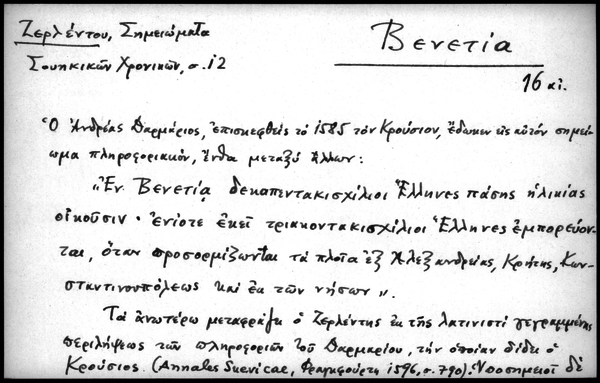 Ζερλέντου, Σημειώματα
Σουηκικῶν Χρονικῶν, σ. 12
Βενετία
16 αἰ.
Ὁ Ἀνδρέας Δαρμάριος, ἐπισκεφθεὶς τὸ 1585 τὸν Κρούσιον, ἔδωκεν εἰς αὐτόν σημεί-
ωμα πληροφοριακόν, ἔνθα μεταξὺ ἄλλων:
"Ἐν Βενετίᾳ δεκαπεντακισχίλιοι Ἕλληνες πάσης ἡλικίας
οἰκοῦσιν· ἐνίοτε ἐκεῖ τριακοντακισχίλιοι Ἕλληνες ἐμπορεύον-
ται, ὅταν προσορμίζωνται τὰ πλοῖα ἐξ Ἀλεξανδρείας, Κρήτης, Κων-
σταντινουπόλεως καὶ ἐκ τῶν νήσων".
Τὰ ἀνωτέρω μεταφράζει ὁ Ζερλέντης ἐκ τῆς λατινιστὶ γεγραμμένης
περιλήψεως τῶν πληροφοριῶν τοῦ Δαρμαρίου, τὴν ὁποίαν δίδει ὁ
Κρούσιος (Annales Suevicae, Φραγκφούρτη 1596, σ. 790). Προσημειοῖ δὲ